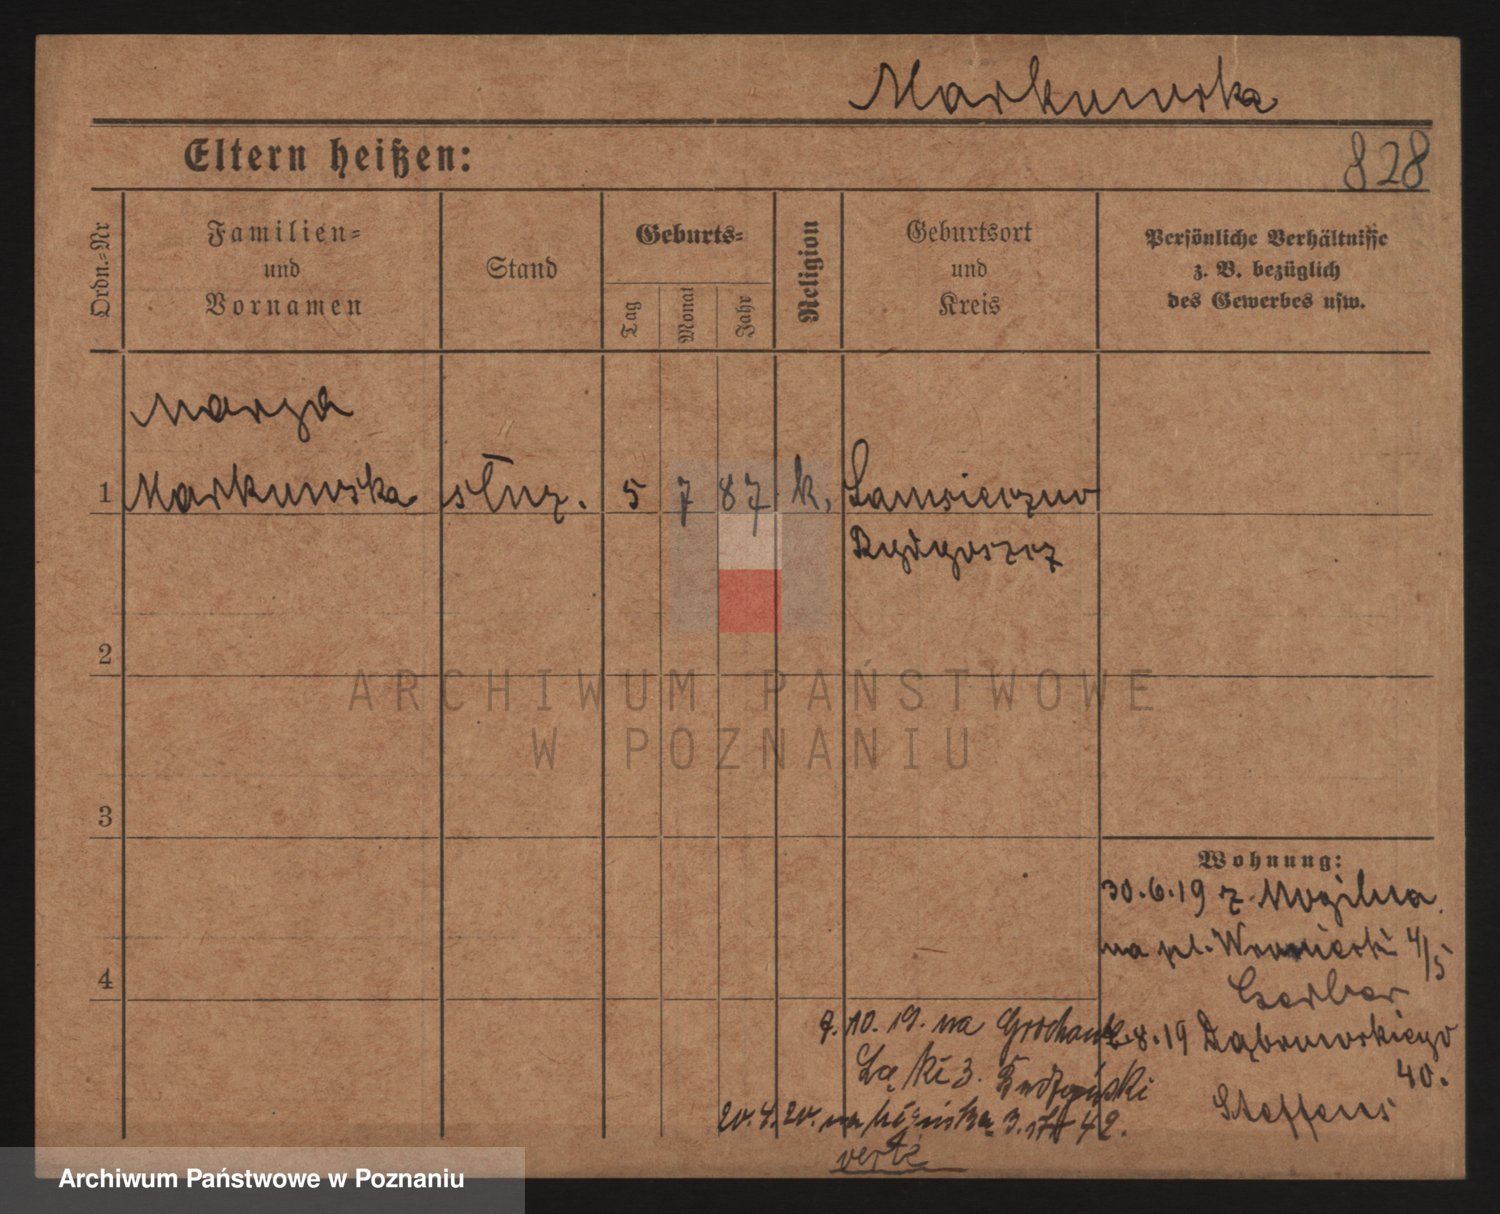 Markowska
Eltern heißen:
828
Ordn.-Nr
Familien-
und
Vornamen
Stand
Geburts-
Tag
Monat
Jahr
Religion
Geburtsort
und
Kreis
Persönliche Verhältnisse
z. B. bezüglich
des Gewerbes usw.
1
Markowska
służ.
5
7
87
k.
Bydgoszcz
2
3
4
Wohnung:
30.6.19 z Mogilna
na pl. 4/5
Gerber
8.19 Dąbrowskiego
40.
Steffens
9.10.19. na Grochowe
Łąki 3.
20.4.20. na 42.
verte
ARCHIWUM PAŃSTWOWE
W POZNANIU
Archiwum Państwowe w Poznaniu